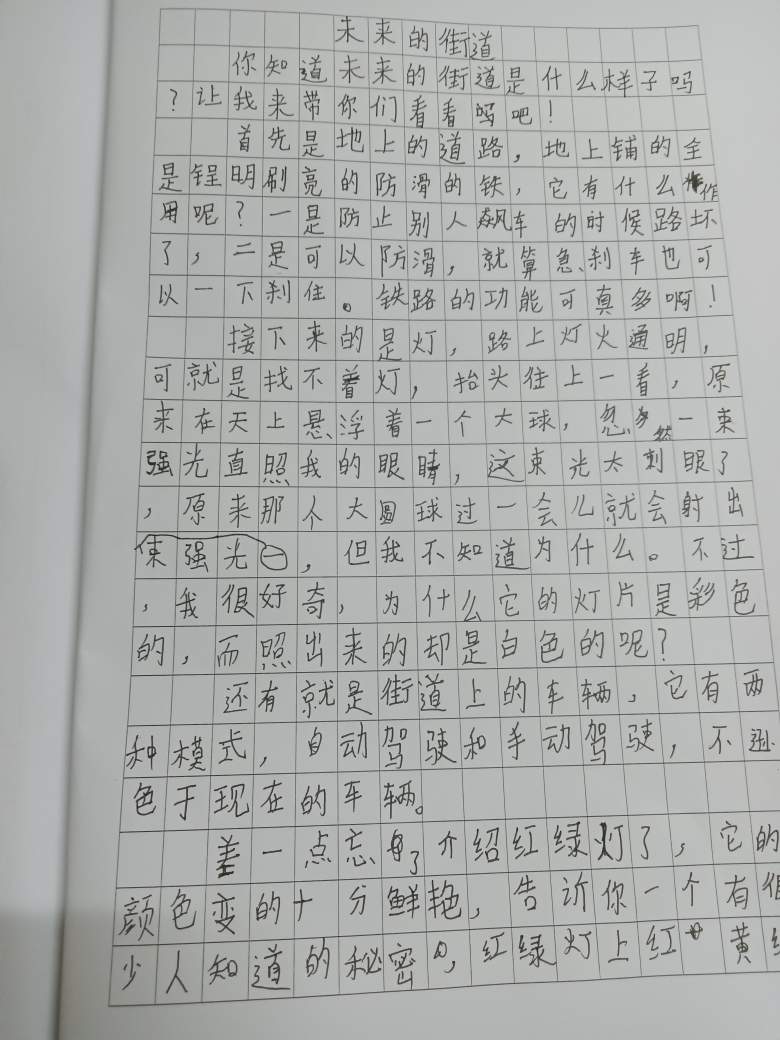 未来的街道
你知道未来的街道是什么样子吗
？让我来带你们看看吗吧！
首先是地上的道路，地上铺的全
是锃明刷亮的防滑的铁，它有什么作
用呢？一是防止别人飙车的时候路坏
了，二是可以防滑，就算急刹车也可
以一下刹住。铁路的功能可真多啊！
接下来的是灯，路上灯火通明，
可就是找不着灯，抬头往上一看，原
来在天上悬浮着一个大球，忽然一束
强光直照我的眼睛，这束光太刺眼了
，原来那个大圆球过一会儿就会射出
束强光一，但我不知道为什么。不过
，我很好奇，为什么它的灯片是彩色
的，而照出来的却是白色的呢？
还有就是街道上的车辆，它有两
种模式，自动驾驶和手动驾驶，不逊
色于现在的车辆。
差一点忘了介绍红绿灯了，它的
颜色变的十分鲜艳，告诉你一个有很
少人知道的秘密，红绿灯上红黄